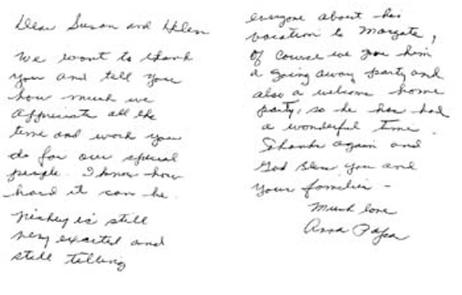 Dear Susan and Helen
We want to thank
you and tell you
how much we
appreciate all the
time and work you
do for our special
people. I know how
hard it can be.
is still
very excited and
still telling
everyone about his
vacation to Margate,
Of course we gave him
a going away party and
also a welcome home
party, so he has had
a wonderful time.
Thanks again and
God Bless you and
your families -
Much love
Anna Papa